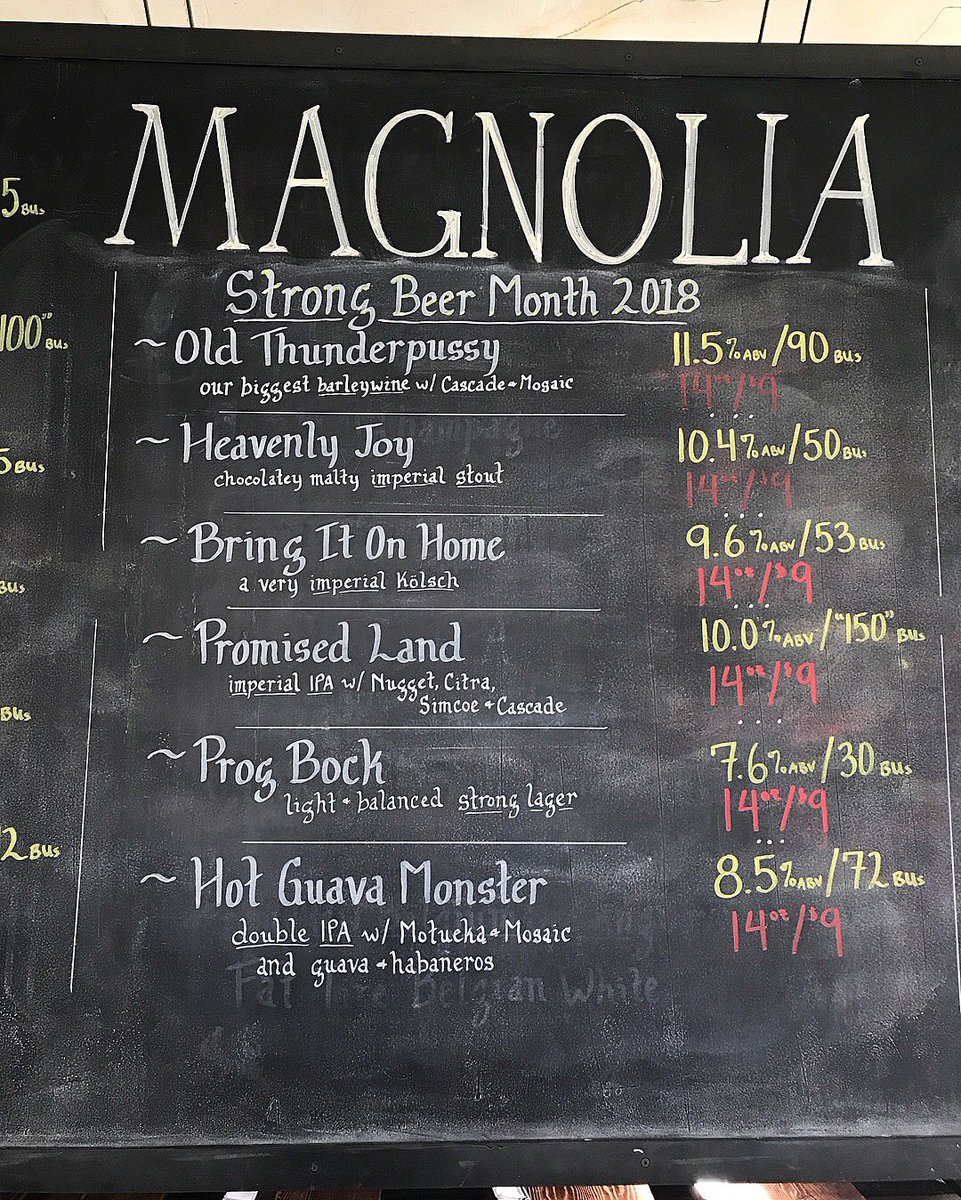 MAGNOLIA
Strong Beer Month 2018
5 BUs
~ Old Thunderpussy 11.5% ABV/90 BUs
our biggest barleywine w/ Cascade + Mosaic 14oz/$9
100" BUs
~ Heavenly Joy 10.4% ABV/50 BUs
Champagne
chocolatey malty imperial stout 14oz/$9
5 BUs
~ Bring It On Home 9.6% ABV/53 BUs
a very imperial Kölsch 14oz/$9
BUs
~ Promised Land 10.0% ABV/"150" BUs
imperial IPA w/ Nugget, Citra, 14oz/$9
Simcoe + Cascade
BUs
~ Prog Bock 7.6% ABV/30 BUs
light + balanced strong lager 14oz/$9
2 BUs
~ Hot Guava Monster 8.5% ABV/72 BUs
double IPA w/ Motueka + Mosaic 14oz/$9
and guava + habañeros
Fat Tire Belgian White